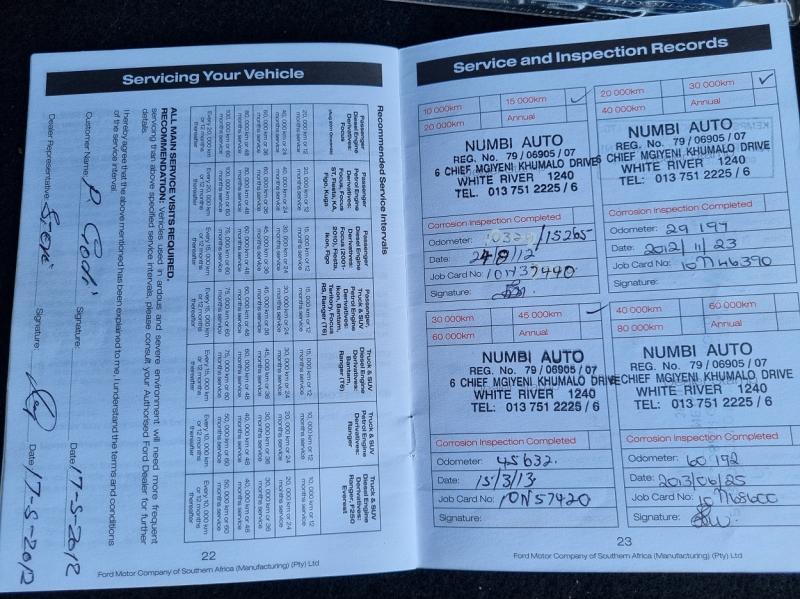 Servicing Your Vehicle
Recommended Service Intervals
Passenger Diesel Engine Derivatives: Focus
Passenger Petrol Engine Derivatives: Focus, Focus ST, Fiesta, KA, Figo, Kuga
Passenger Diesel Engine Derivatives: Focus (2001-2010), Fiesta, Ikon, Figo
Passenger, Truck & SUV Petrol Engine Derivatives: Ikon, Bantam, Territory, Focus RS, Ranger (T6)
Truck & SUV Diesel Engine Derivatives: Bantam, Ranger (T6)
Truck & SUV Petrol Engine Derivatives: Ranger
Truck & SUV Diesel Engine Derivatives: Ranger, F250 Everest
20, 000 km or 12 months service
20, 000 km or 12 months service
15, 000 km or 12 months service
15, 000 km or 12 months service
15, 000 km or 12 months service
10, 000 km or 12 months service
10, 000 km or 12 months service
40, 000 km or 24 months service
40, 000 km or 24 months service
30, 000 km or 24 months service
30, 000 km or 24 months service
30, 000 km or 24 months service
20, 000 km or 24 months service
20, 000 km or 24 months service
60, 000 km or 36 months service
60, 000 km or 36 months service
45, 000 km or 36 months service
45, 000 km or 36 months service
45, 000 km or 36 months service
30, 000 km or 36 months service
30, 000 km or 36 months service
80, 000 km or 48 months service
80, 000 km or 48 months service
60, 000 km or 48 months service
60, 000 km or 48 months service
60, 000 km or 48 months service
40, 000 km or 48 months service
40, 000 km or 48 months service
100, 000 km or 60 months service
100, 000 km or 60 months service
75, 000 km or 60 months service
75, 000 km or 60 months service
75, 000 km or 60 months service
50, 000 km or 60 months service
50, 000 km or 60 months service
Every 20, 000 km or 12 months thereafter
Every 20, 000 km or 12 months thereafter
Every 15, 000 km or 12 months thereafter
Every 15, 000 km or 12 months thereafter
Every 15, 000 km or 12 months thereafter
Every 10, 000 km or 12 months thereafter
Every 10, 000 km or 12 months thereafter
ALL MAIN SERVICE VISITS REQUIRED.
RECOMMENDATION: Vehicles used in ardous and severe environment will need more frequent
servicing than above specified service intervals, please consult your Authorised Ford Dealer for further
details.
I hereby agree that the above mentioned has been explained to me, I understand the terms and conditions
of the service interval.
Customer Name: Signature: Date 17-5-2012
Dealer Representative: Signature: Date 17-5-2012
22
Ford Motor Company of Southern Africa (Manufacturing) (Pty) Ltd
Service and Inspection Records
10 000km 15 000km ✓
20 000km Annual
NUMBI AUTO
REG. No. 79 / 06905 / 07
6 CHIEF MGIYENI KHUMALO DRIVE
WHITE RIVER 1240
TEL: 013 751 2225 / 6
Corrosion Inspection Completed
Odometer: 15265
Date: 24/8/12
Job Card No: 10N37440
Signature:
20 000km 30 000km ✓
40 000km Annual
NUMBI AUTO
REG. No. 79 / 06905 / 07
6 CHIEF MGIYENI KHUMALO DRIVE
WHITE RIVER 1240
TEL: 013 751 2225 / 6
Corrosion Inspection Completed
Odometer: 29 197
Date: 2012/11/23
Job Card No: 10N46390
Signature:
30 000km 45 000km ✓
60 000km Annual
NUMBI AUTO
REG. No. 79 / 06905 / 07
6 CHIEF MGIYENI KHUMALO DRIVE
WHITE RIVER 1240
TEL: 013 751 2225 / 6
Corrosion Inspection Completed
Odometer: 45632.
Date: 15/3/13
Job Card No: 10N57420
Signature:
40 000km 60 000km
80 000km Annual
NUMBI AUTO
REG. No. 79 / 06905 / 07
CHIEF MGIYENI KHUMALO DRIVE
WHITE RIVER 1240
TEL: 013 751 2225 / 6
Corrosion Inspection Completed
Odometer: 60 192
Date: 2013/06/25
Job Card No: 10N68600
Signature:
23
Ford Motor Company of Southern Africa (Manufacturing) (Pty) Ltd